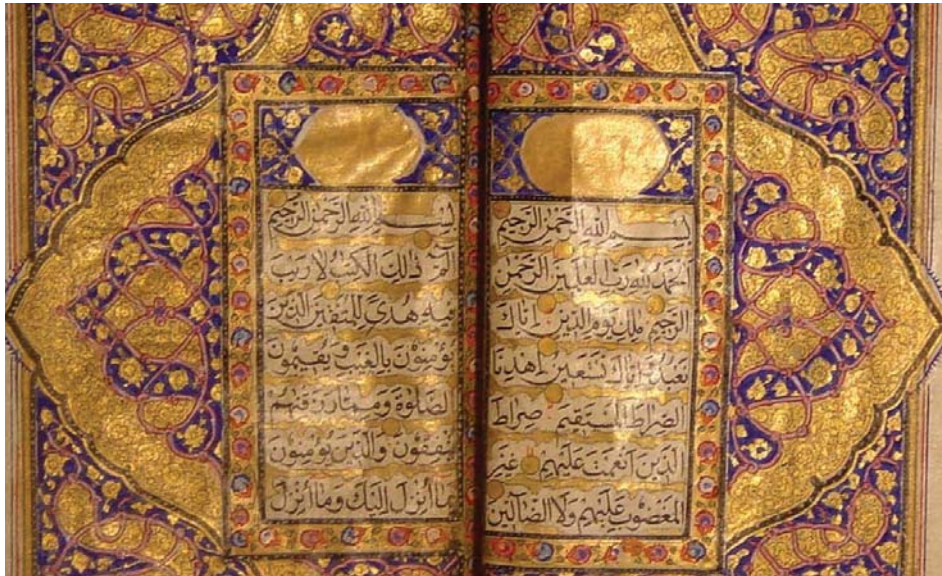 بسم الله الرحمن الرحيم
الحمد لله رب العلمين الرحمن
الرحيم ملك يوم الدين إياك
نعبد وإياك نستعين اهدنا
الصراط المستقيم صراط
الذين أنعمت عليهم غير
المغضوب عليهم ولا الضالين
بسم الله الرحمن الرحيم
الم ذلك الكتب لا ريب
فيه هدى للمتقين الذين
يؤمنون بالغيب ويقيمون
الصلوة ومما رزقنهم
ينفقون والذين يؤمنون
بما أنزل إليك وما أنزل